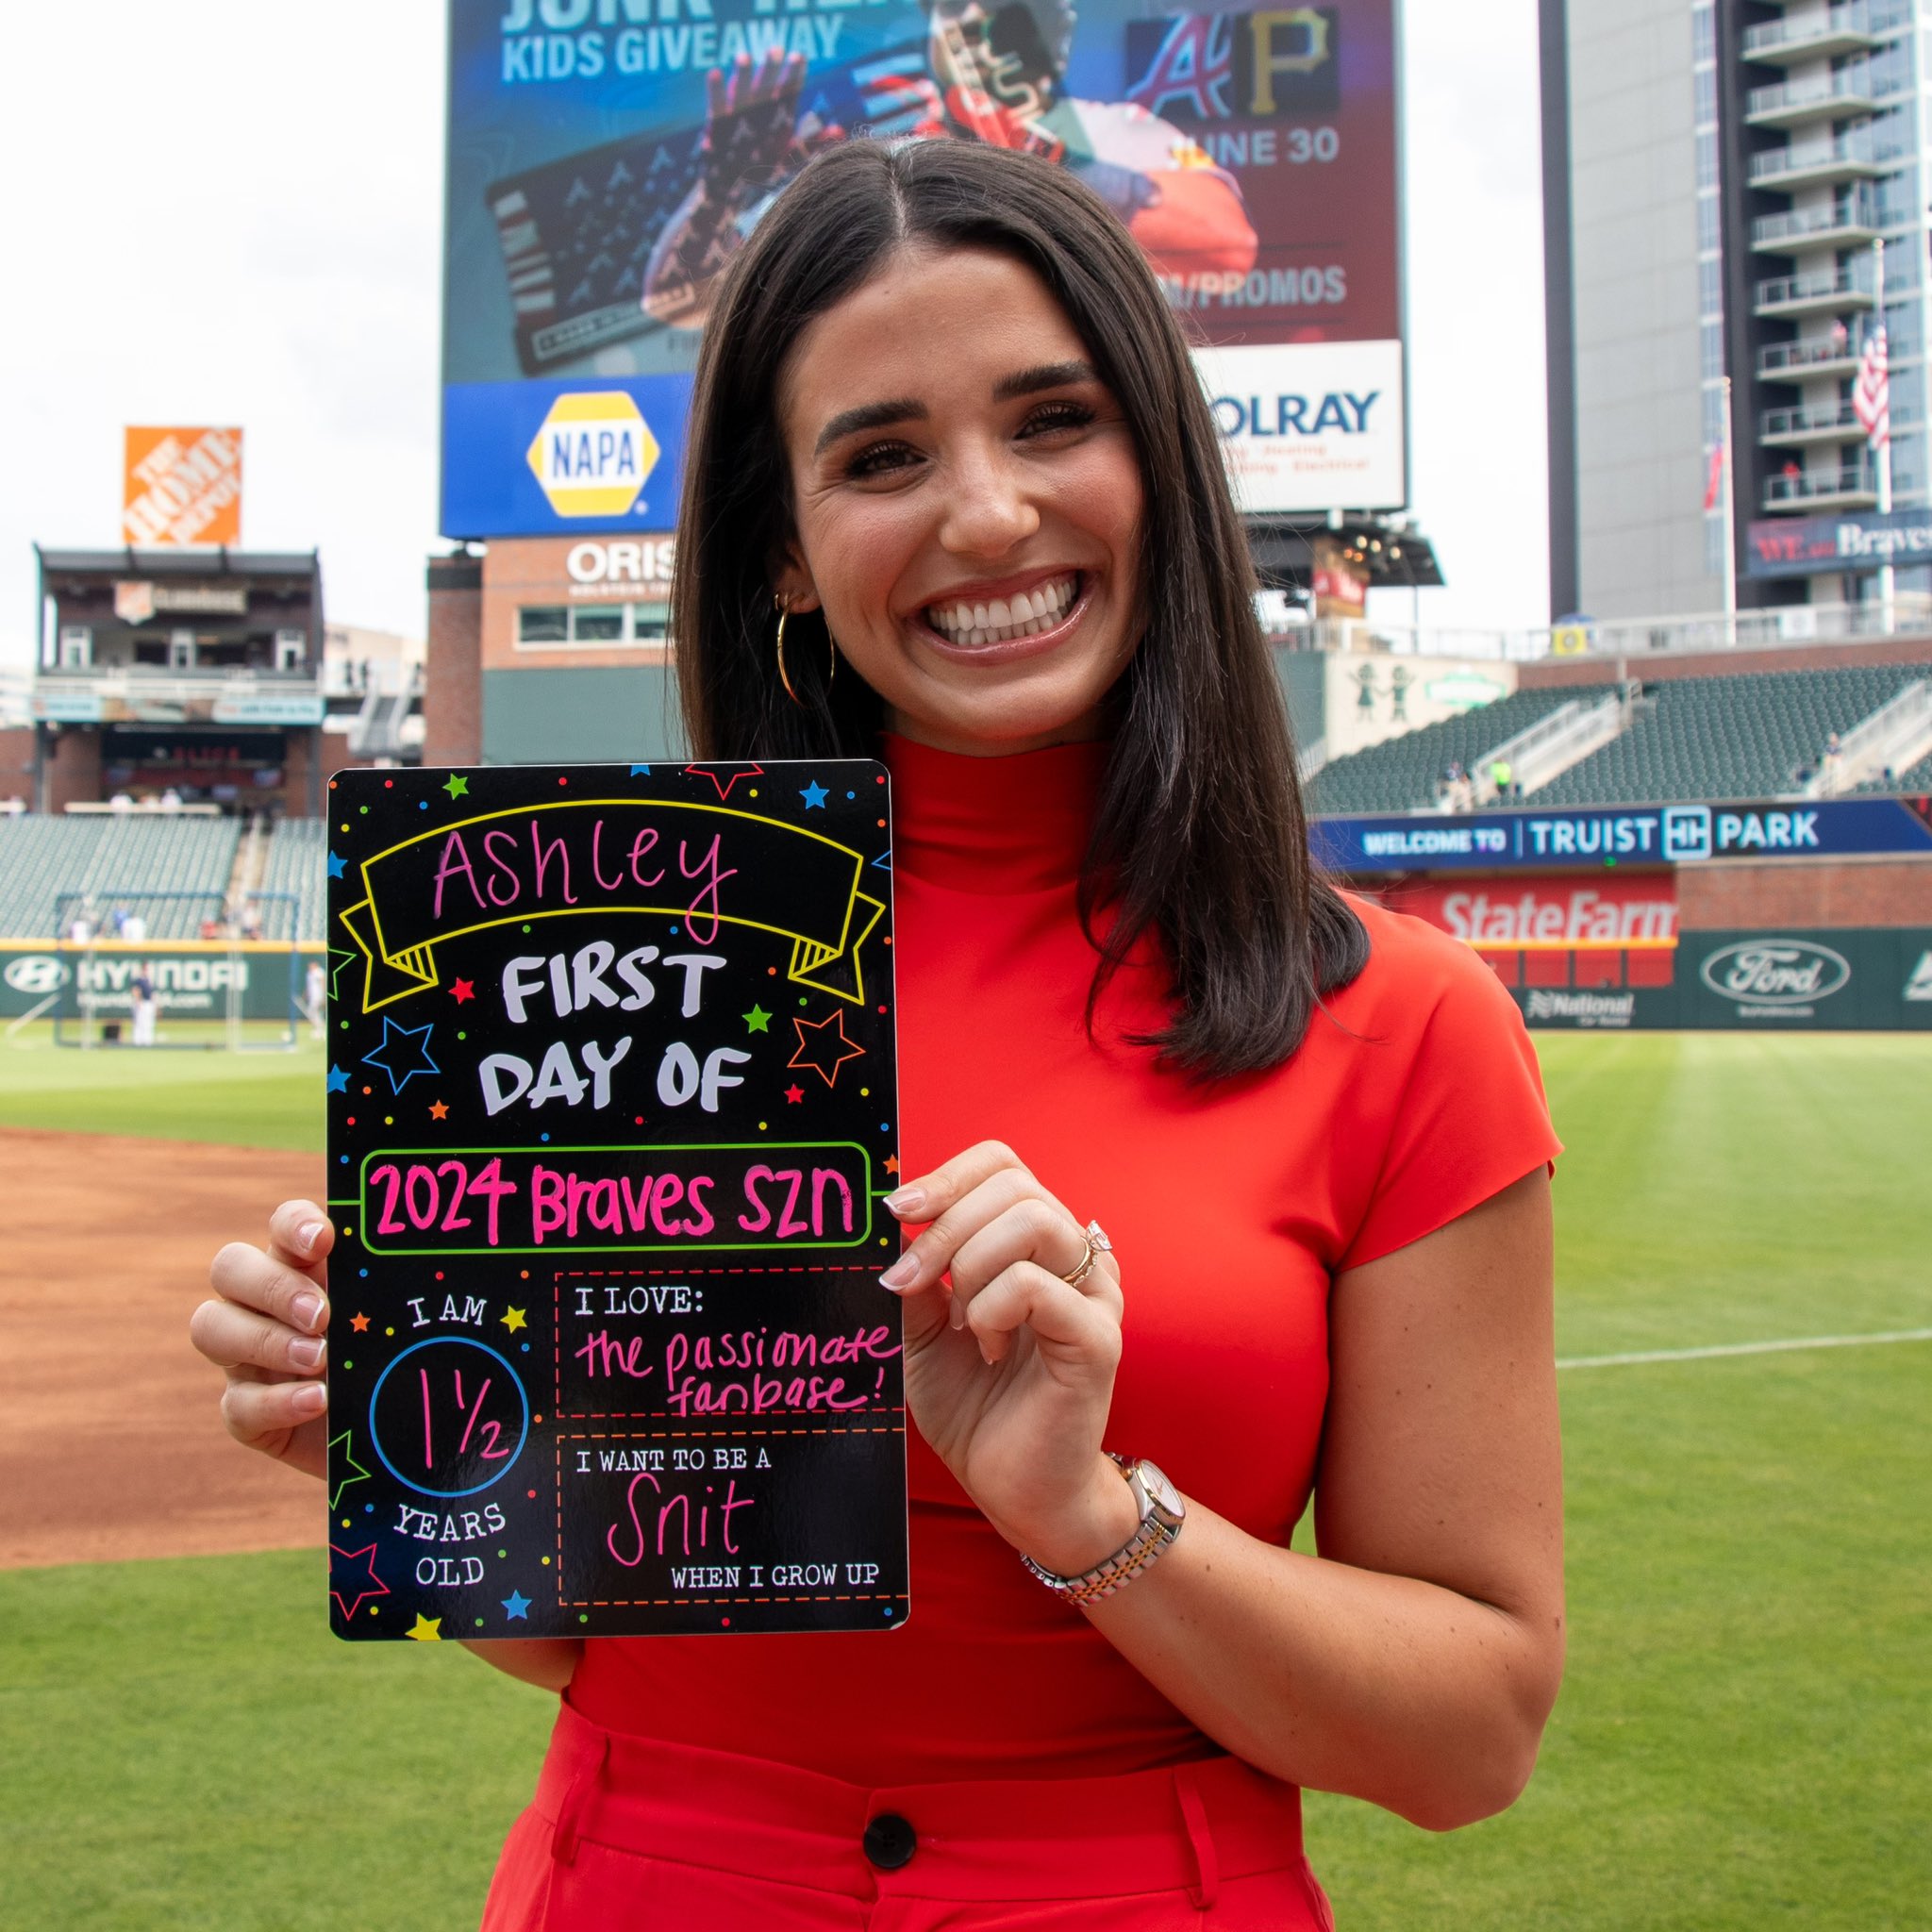 KIDS GIVEAWAY
A P
JUNE 30
/PROMOS
NAPA
OLRAY
THE
HOME
DEPOT
ORIS
WE are Braves
WELCOME TO | TRUIST PARK
StateFarm
HYUNDAI
Ford
National
Ashley
FIRST
DAY OF
2024 Braves SZN
I AM
1 1/2
YEARS
OLD
I LOVE:
the passionate
fanbase!
I WANT TO BE A
Snit
WHEN I GROW UP